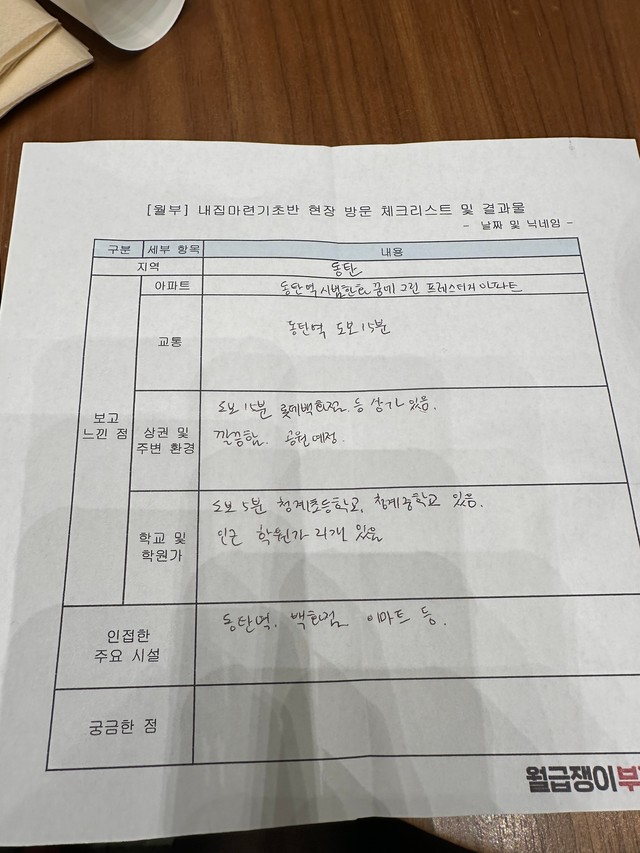 [월부] 내집마련기초반 현장 방문 체크리스트 및 결과물
- 날짜 및 닉네임 -
구분 세부 항목 내용
지역 동탄
아파트 동탄역시범한화꿈에그린 프레스티지 아파트
교통 동탄역 도보 15분
보고 느낀 점
상권 및 주변 환경
도보 15분 롯데백화점 등 상가 있음.
깔끔함. 공원 예정.
학교 및 학원가
도보 5분 청계초등학교, 청계중학교 있음.
인근 학원가 있음
인접한 주요 시설
동탄역. 백화점 이마트 등.
궁금한 점
월급쟁이부